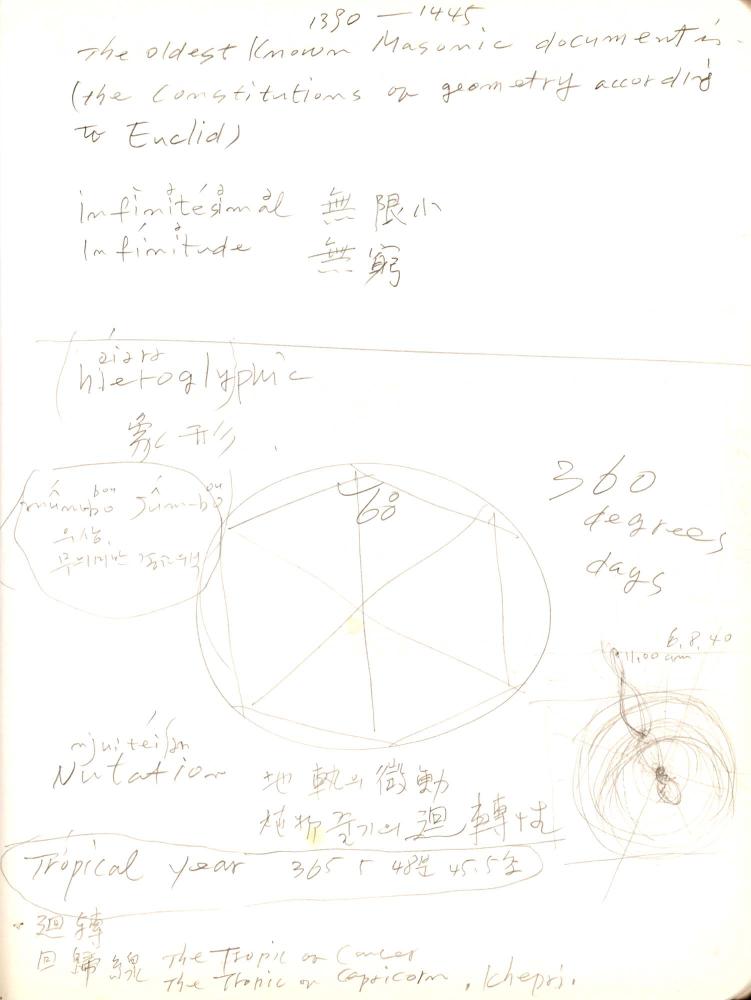 1390 — 1445
The oldest Known Masonic document is
(the Constitutions of geometry according
to Euclid)
infinitésimal 無限小
Infinitude 無窮
hieroglyphic
象形
mûmbo júmbo
우상,
360
degrees
days
60°
6.8.40
11,00 am
njuːtéiʃən
Nutation 地軸의 微動
植物 줄기의 迴轉性
Tropical year 365 5 48분 45.5초
迴轉
回歸線 The Tropic of Cancer
The Tropic of Capricorn, Khepri.